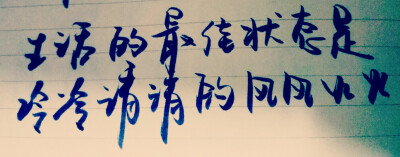 生活的最佳状态是
冷冷清清的风风火火